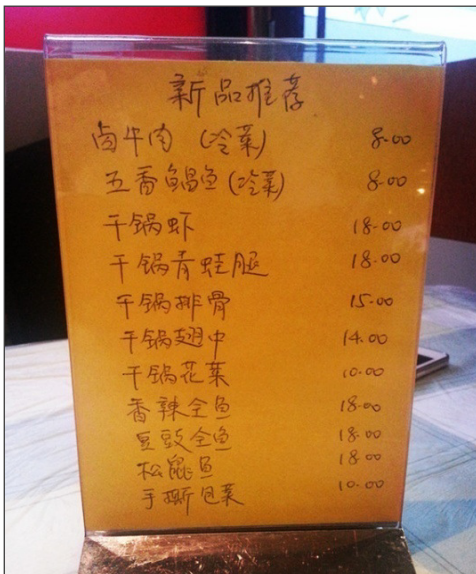 新品推荐
卤牛肉 (冷菜) 8.00
五香鲳鱼 (冷菜) 8.00
干锅虾 18.00
干锅青蛙腿 18.00
干锅排骨 15.00
干锅翅中 14.00
干锅花菜 10.00
香辣全鱼 18.00
豆豉全鱼 18.00
松鼠鱼 18.00
手撕包菜 10.00